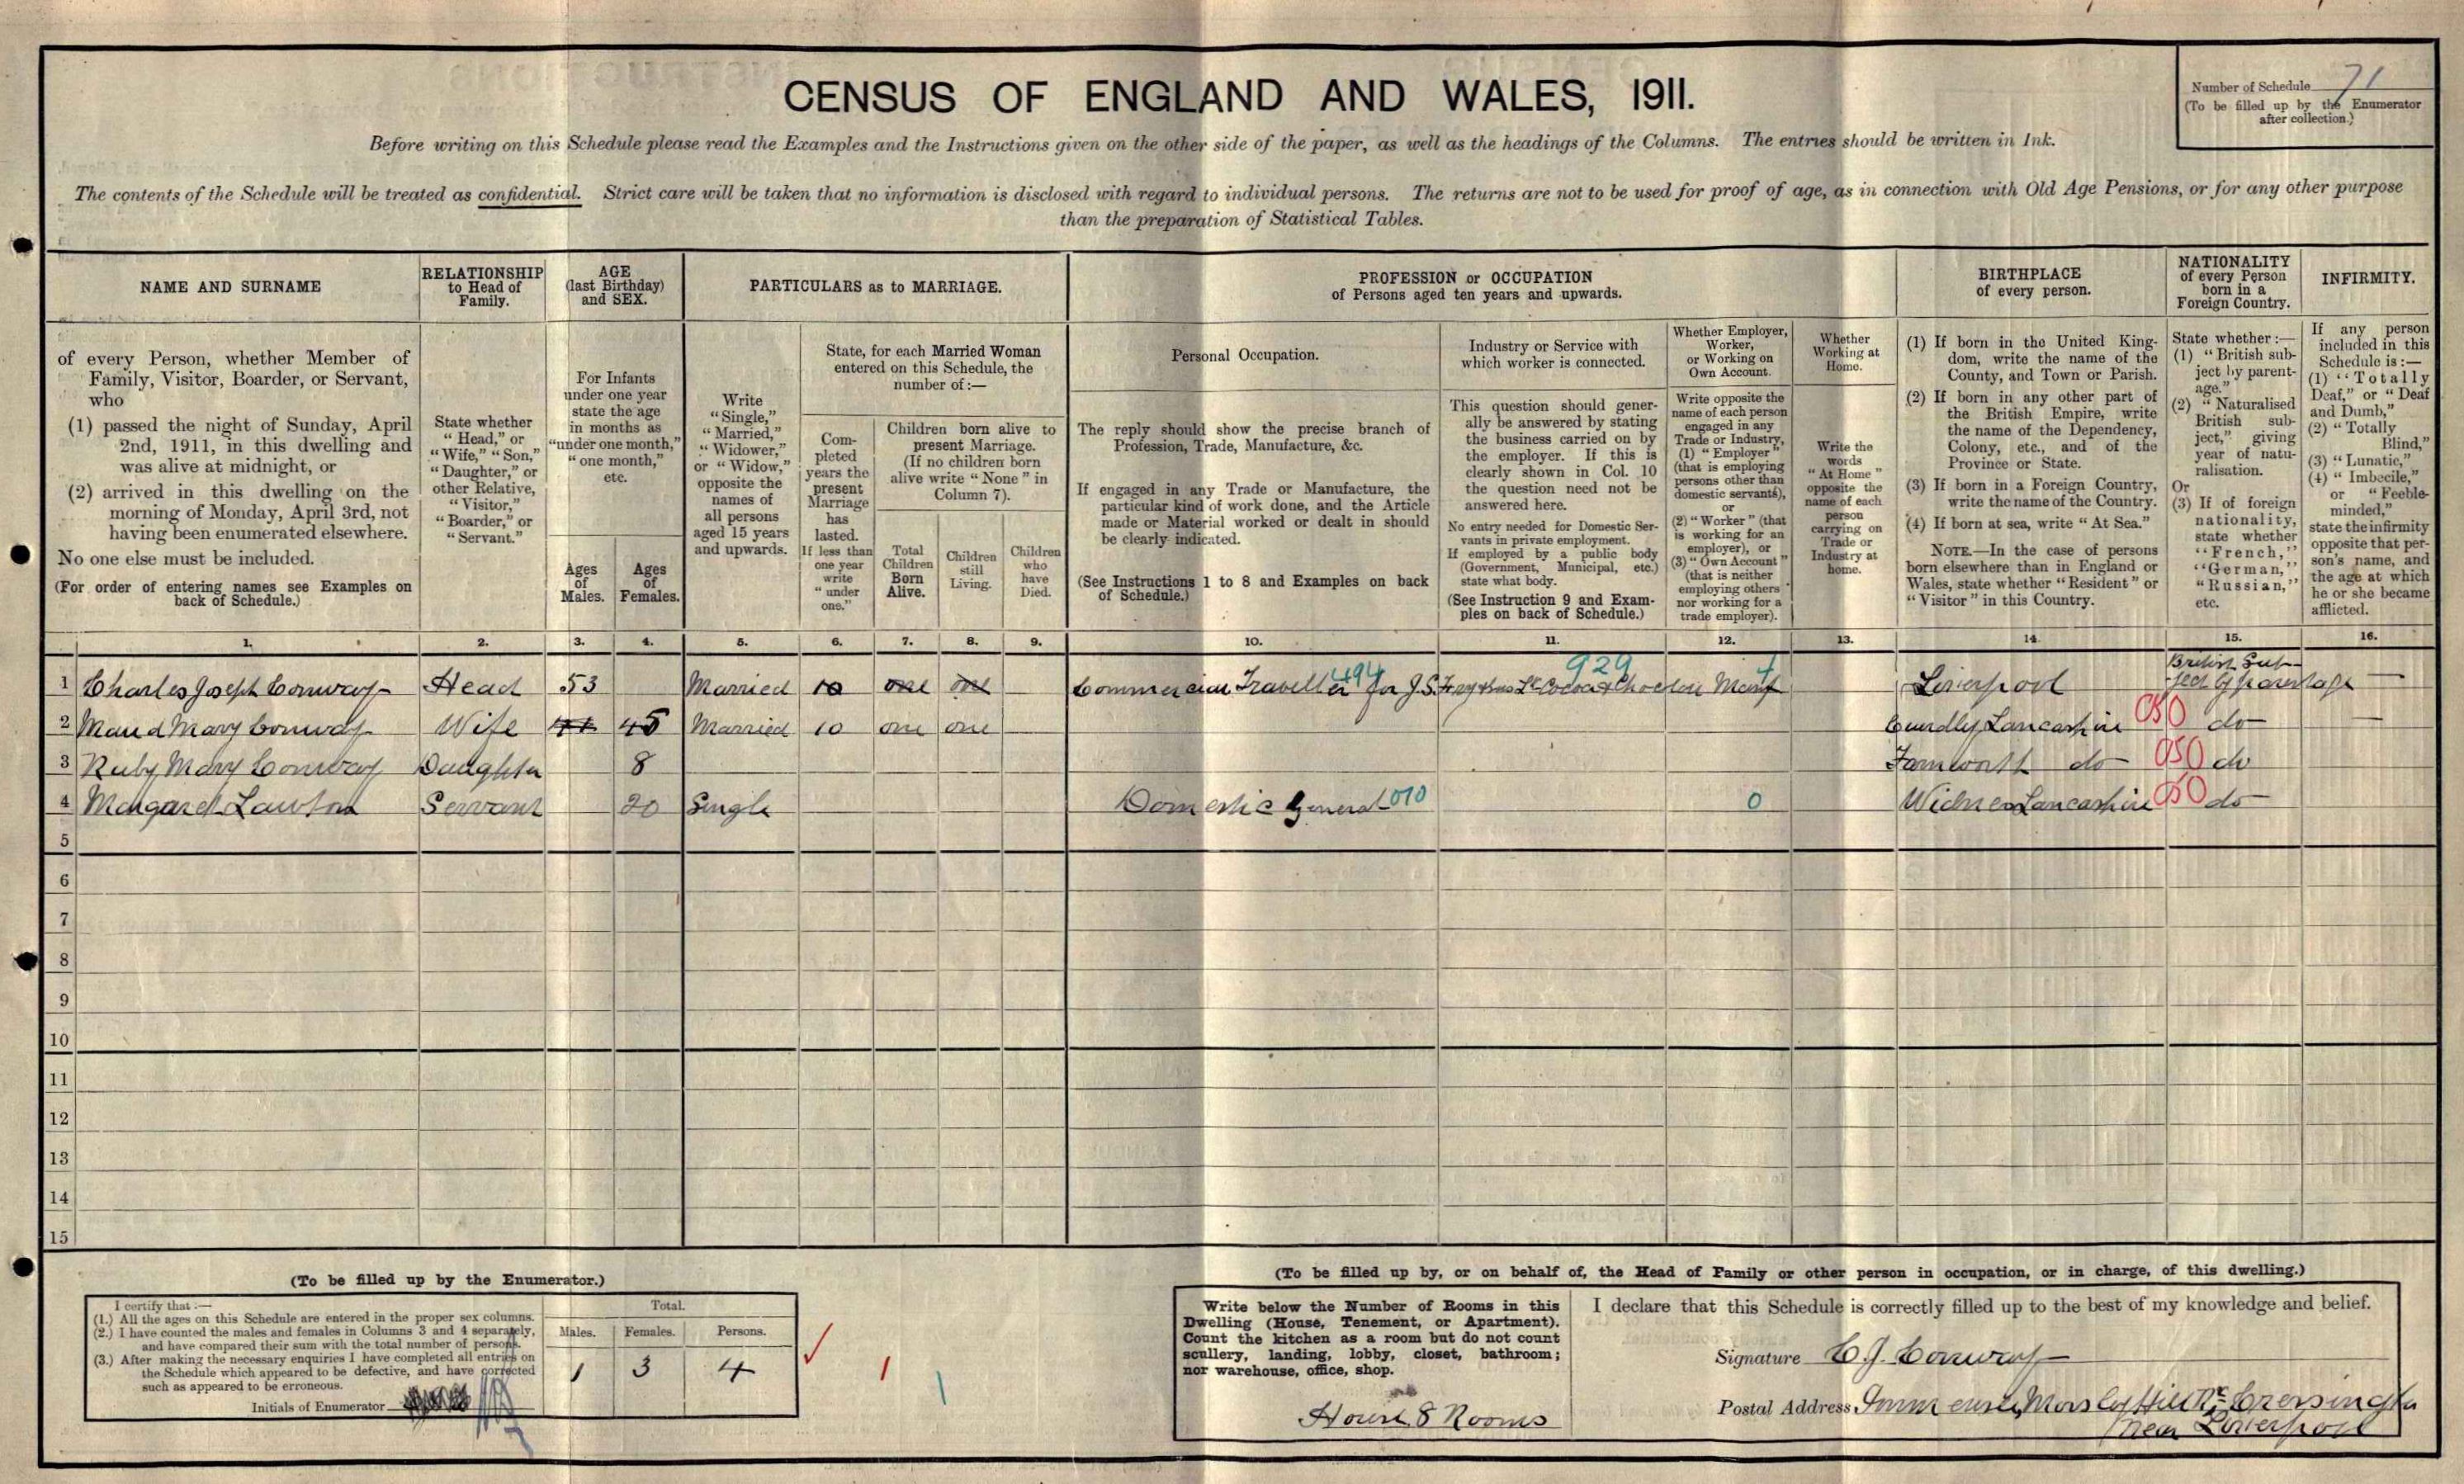 CENSUS OF ENGLAND AND WALES, 1911.
Number of Schedule 71
(To be filled up by the Enumerator
after collection.)
Before writing on this Schedule please read the Examples and the Instructions given on the other side of the paper, as well as the headings of the Columns. The entries should be written in Ink.
The contents of the Schedule will be treated as confidential. Strict care will be taken that no information is disclosed with regard to individual persons. The returns are not to be used for proof of age, as in connection with Old Age Pensions, or for any other purpose
than the preparation of Statistical Tables.
NAME AND SURNAME
of every Person, whether Member of
Family, Visitor, Boarder, or Servant,
who
(1) passed the night of Sunday, April
2nd, 1911, in this dwelling and
was alive at midnight, or
(2) arrived in this dwelling on the
morning of Monday, April 3rd, not
having been enumerated elsewhere.
No one else must be included.
(For order of entering names see Examples on
back of Schedule.)
RELATIONSHIP
to Head of
Family.
State whether
"Head," or
"Wife," "Son,"
"Daughter," or
other Relative,
"Visitor,"
"Boarder," or
"Servant."
AGE
(last Birthday)
and SEX.
For Infants
under one year
state the age
in months as
"under one month,"
"one month,"
etc.
Ages
of
Males.
Ages
of
Females.
PARTICULARS as to MARRIAGE.
Write
"Single,"
"Married,"
"Widower,"
or "Widow,"
opposite the
names of
all persons
aged 15 years
and upwards.
State, for each Married Woman
entered on this Schedule, the
number of:—
Com-
pleted
years the
present
Marriage
has
lasted.
If less than
one year
write
"under
one."
Children born alive to
present Marriage.
(If no children born
alive write "None" in
Column 7).
Total
Children
Born
Alive.
Children
still
Living.
Children
who
have
Died.
PROFESSION or OCCUPATION
of Persons aged ten years and upwards.
Personal Occupation.
The reply should show the precise branch of
Profession, Trade, Manufacture, &c.
If engaged in any Trade or Manufacture, the
particular kind of work done, and the Article
made or Material worked or dealt in should
be clearly indicated.
(See Instructions 1 to 8 and Examples on back
of Schedule.)
Industry or Service with
which worker is connected.
This question should gener-
ally be answered by stating
the business carried on by
the employer. If this is
clearly shown in Col. 10
the question need not be
answered here.
No entry needed for Domestic Ser-
vants in private employment.
If employed by a public body
(Government, Municipal, etc.)
state what body.
(See Instruction 9 and Exam-
ples on back of Schedule.)
Whether Employer,
Worker,
or Working on
Own Account.
Write opposite the
name of each person
engaged in any
Trade or Industry,
(1) "Employer"
(that is employing
persons other than
domestic servants),
or
(2) "Worker" (that
is working for an
employer), or
(3) "Own Account"
(that is neither
employing others
nor working for a
trade employer).
Whether
Working at
Home.
Write the
words
"At Home"
opposite the
name of each
person
carrying on
Trade or
Industry at
home.
BIRTHPLACE
of every person.
(1) If born in the United King-
dom, write the name of the
County, and Town or Parish.
(2) If born in any other part of
the British Empire, write
the name of the Dependency,
Colony, etc., and of the
Province or State.
(3) If born in a Foreign Country,
write the name of the Country.
(4) If born at sea, write "At Sea."
NOTE.—In the case of persons
born elsewhere than in England or
Wales, state whether "Resident" or
"Visitor" in this Country.
NATIONALITY
of every Person
born in a
Foreign Country.
State whether:—
(1) "British sub-
ject by parent-
age."
(2) "Naturalised
British sub-
ject," giving
year of natu-
ralisation.
Or
(3) If of foreign
nationality,
state whether
"French,"
"German,"
"Russian,"
etc.
INFIRMITY.
If any person
included in this
Schedule is:—
(1) "Totally
Deaf," or "Deaf
and Dumb,"
(2) "Totally
Blind,"
(3) "Lunatic,"
(4) "Imbecile,"
or "Feeble-
minded,"
state the infirmity
opposite that per-
son's name, and
the age at which
he or she became
afflicted.
1. 2. 3. 4. 5. 6. 7. 8. 9. 10. 11. 12. 13. 14. 15. 16.
494 929
1 Charles Joseph Conway Head 53 Married 10 one one Commercial Traveller for J.S. Fry & Sons Ld Cocoa & Chocolate Manf Liverpool British Sub-
ject by parentage —
2 Maud Mary Conway Wife 45 Married 10 one one Cuerdley Lancashire 050 do —
3 Ruby Mary Conway Daughter 8 Farnworth do 050 do
4 Margaret Lawton Servant 20 Single Domestic General 010 0 Widnes Lancashire 050 do
5
6
7
8
9
10
11
12
13
14
15
(To be filled up by the Enumerator.)
I certify that:—
(1.) All the ages on this Schedule are entered in the proper sex columns.
(2.) I have counted the males and females in Columns 3 and 4 separately,
and have compared their sum with the total number of persons.
(3.) After making the necessary enquiries I have completed all entries on
the Schedule which appeared to be defective, and have corrected
such as appeared to be erroneous.
Initials of Enumerator
Total.
Males. Females. Persons.
1 3 4
(To be filled up by, or on behalf of, the Head of Family or other person in occupation, or in charge, of this dwelling.)
Write below the Number of Rooms in this
Dwelling (House, Tenement, or Apartment).
Count the kitchen as a room but do not count
scullery, landing, lobby, closet, bathroom;
nor warehouse, office, shop.
House 8 Rooms
I declare that this Schedule is correctly filled up to the best of my knowledge and belief.
Signature C. J. Conway
Postal Address Mossley Hill Rd Cressington
Near Liverpool